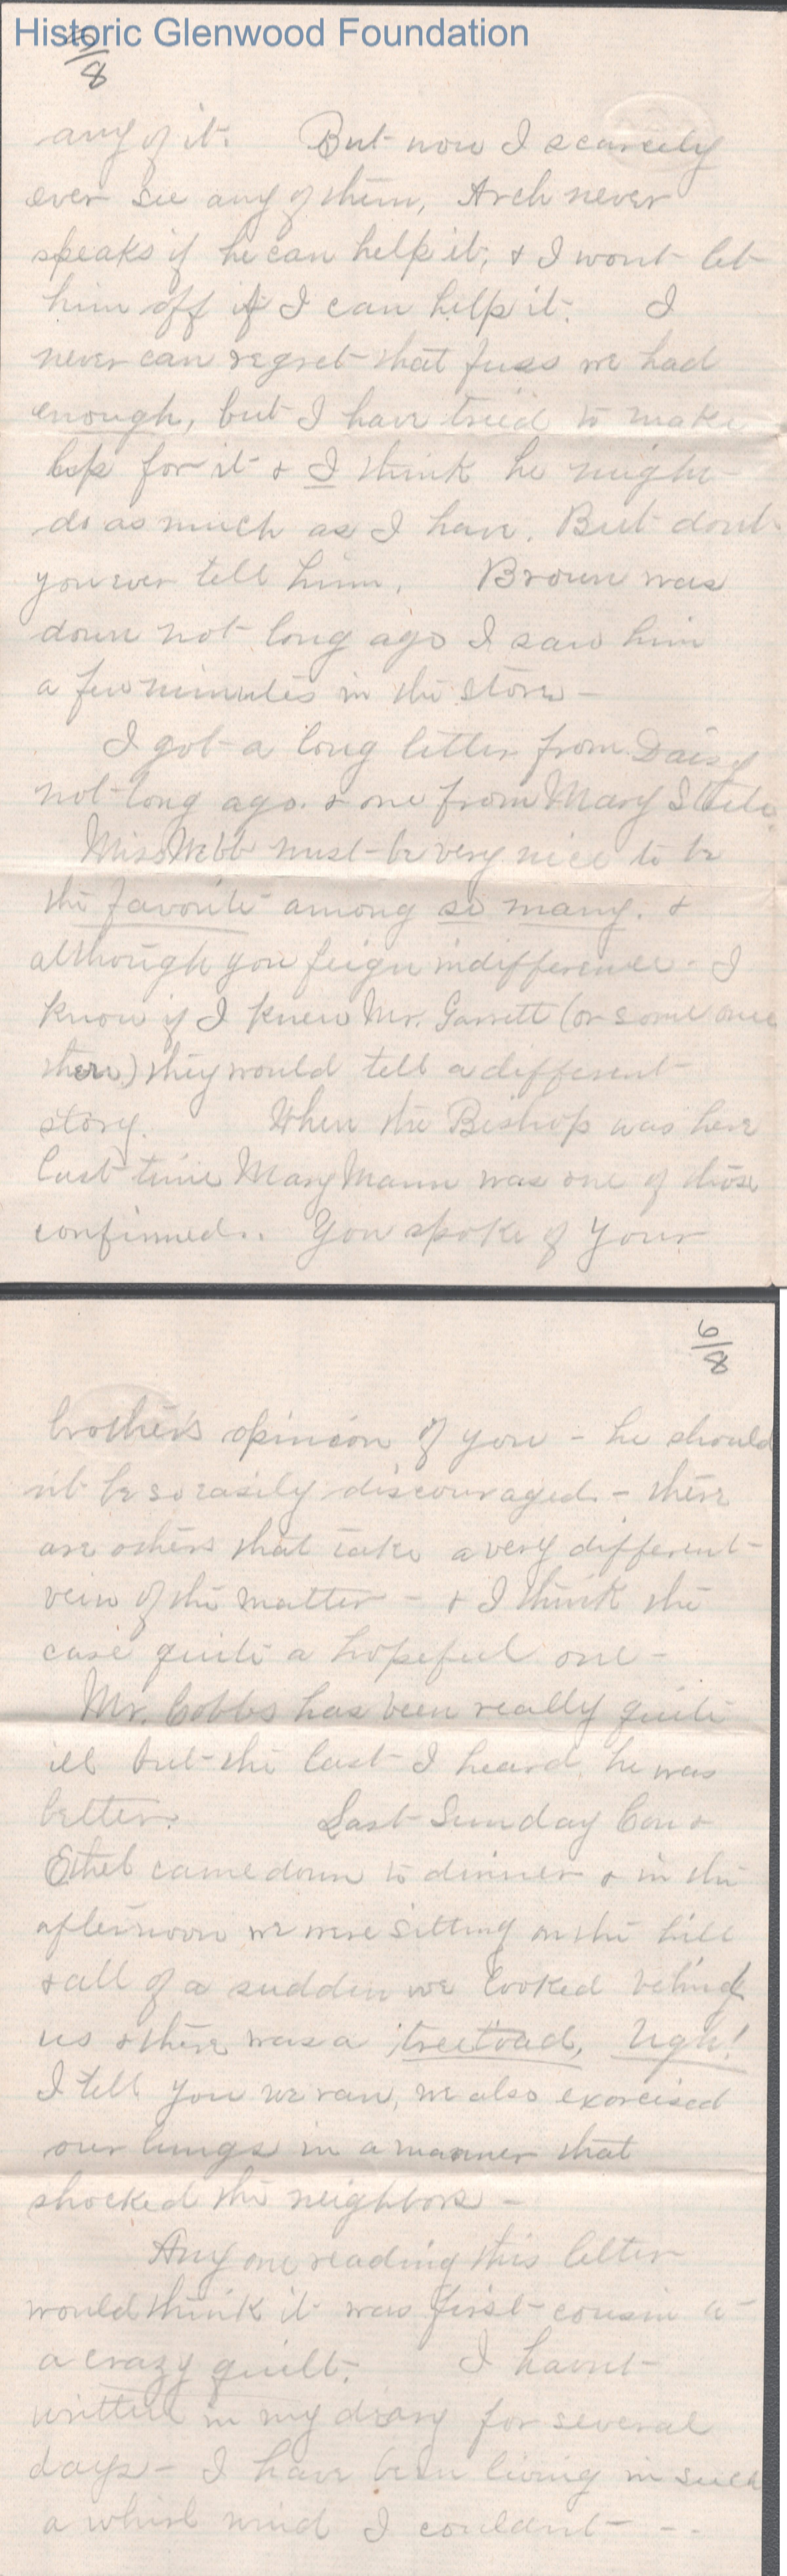 Historic Glenwood Foundation
5/8
any of it. But now I scarcely
ever see any of them, Arch never
speaks if he can help it, & I wont let
him off if I can help it. I
never can regret that fuss we had
enough, but I have tried to make
up for it & I think he might
do as much as I have. But dont
you ever tell him. Brown was
down not long ago I saw him
a few minutes in the store -
I got a long letter from Daisy
not long ago. & one from Mary Steele
Miss Webb must be very nice to be
the favorite among so many. &
although you feign indifference - I
know if I knew Mr. Garrett (or some one
there) they would tell a different
story. When the Bishop was here
last time Mary Mann was one of those
confirmed. You spoke of your
6/8
brother's opinion of you - he should
n't be so easily discouraged - there
are others that take a very different
view of the matter - & I think the
case quite a hopeful one -
Mr. Cobbs has been really quite
ill but the last I heard, he was
better. Last Sunday Con &
Ethel came down to dinner & in the
afternoon we were sitting on the hill
& all of a sudden we looked behind
us & there was a treetoad, Ugh!
I tell you we ran, we also exorcised
our lungs in a manner that
shocked the neighbors -
Any one reading this letter
would think it was first cousin to
a crazy quilt. I havnt
written in my diary for several
days - I have been living in such
a whirl wind I couldnt - - -